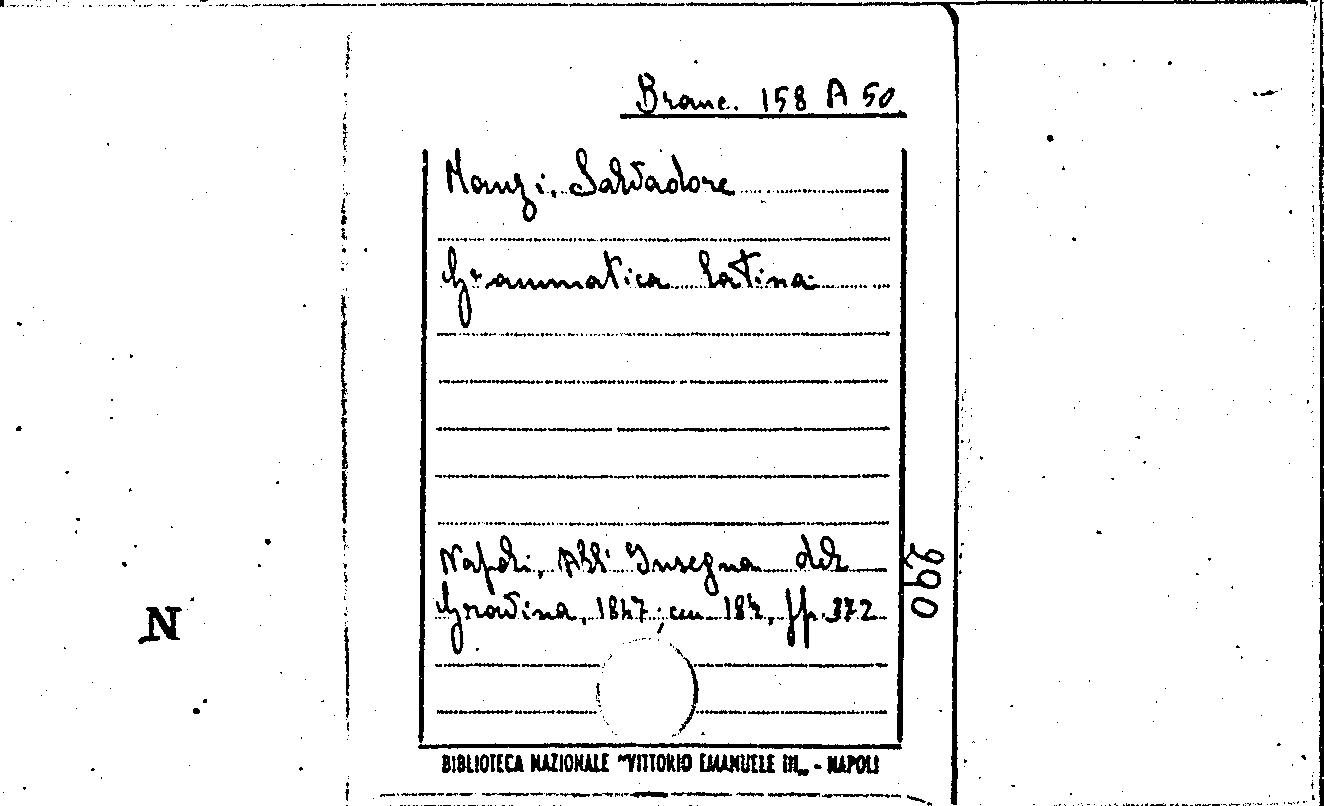 Branc. 158 A 50
Manzi, Salvadore
Grammatica latina
Napoli, All' Insegna del
Gravina, 1847; cm 18½, pp. 372
290
N
BIBLIOTECA NAZIONALE "VITTORIO EMANUELE III„ - NAPOLI